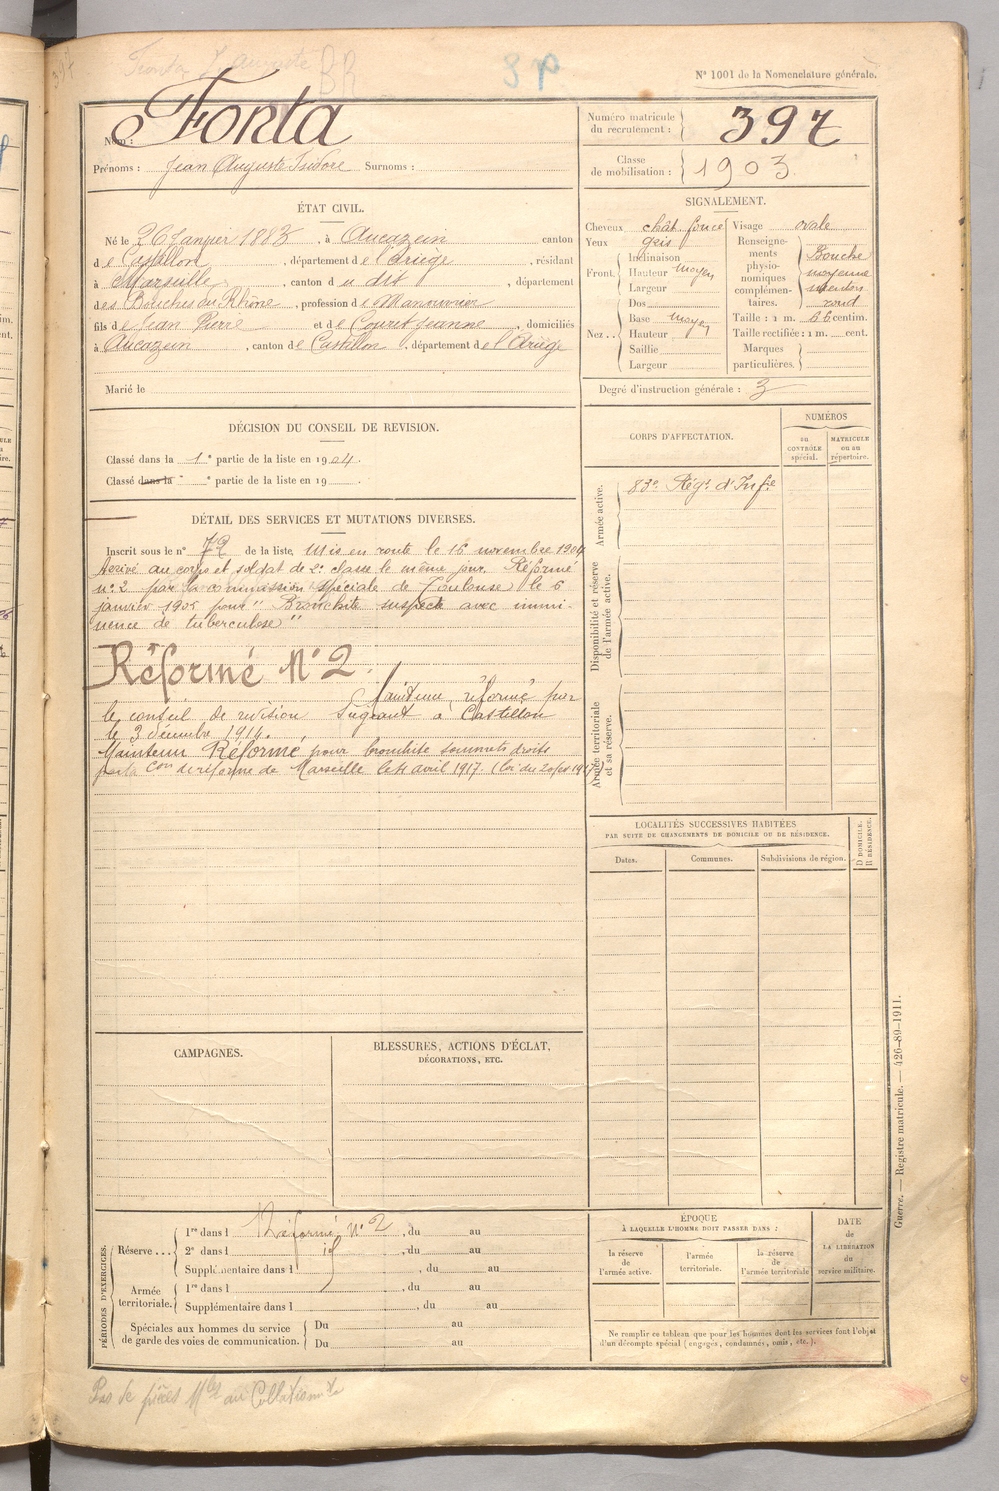 397
BR
SP
N° 1001 de la Nomenclature générale.
Nom : Fonta
Prénoms : Jean Auguste Isidore Surnoms :
Numéro matricule du recrutement : 397
Classe de mobilisation : 1903
ÉTAT CIVIL.
Né le 26 Janvier 1883, à Aucazein canton
de Castillon, département de l'Ariège, résidant
à Marseille, canton du dit, département
des Bouches du Rhône, profession de Manœuvre
fils de Jean Pierre et de Couret Jeanne, domiciliés
à Aucazein, canton de Castillon, département de l'Ariège
Marié le
SIGNALEMENT.
Cheveux chât. foncé
Yeux gris
Front. Inclinaison
Hauteur moyen
Largeur
Nez.. Dos
Base moyen
Hauteur
Saillie
Largeur
Visage ovale
Renseignements physionomiques complémentaires. Bouche
moyenne
menton
rond
Taille : 1 m. 66 centim.
Taille rectifiée : 1 m. cent.
Marques particulières.
Degré d'instruction générale : 3
DÉCISION DU CONSEIL DE REVISION.
Classé dans la 1e partie de la liste en 1904.
Classé dans la e partie de la liste en 19
CORPS D'AFFECTATION.
NUMÉROS
au CONTRÔLE spécial.
MATRICULE ou au répertoire.
Armée active.
83e Régt d'Infie
Disponibilité et réserve de l'armée active.
Armée territoriale et sa réserve.
DÉTAIL DES SERVICES ET MUTATIONS DIVERSES.
Inscrit sous le n° 72 de la liste, Mis en route le 16 novembre 1904
Arrivé au corps et soldat de 2e classe le même jour. Réformé
n° 2 par la commission spéciale de Toulouse le 6
janvier 1905 pour "Bronchite suspecte avec immi-
nence de tuberculose"
Réformé N° 2.
Maintenu réformé par
le conseil de révision siégeant à Castillon
le 3 décembre 1914.
Maintenu Réformé pour bronchite sommets droits
par la Con de réforme de Marseille le 4 avril 1917. (loi du 20 fev 1917)
LOCALITÉS SUCCESSIVES HABITÉES
PAR SUITE DE CHANGEMENTS DE DOMICILE OU DE RÉSIDENCE.
Dates.
Communes.
Subdivisions de région.
D DOMICILE.
R RÉSIDENCE.
CAMPAGNES.
BLESSURES, ACTIONS D'ÉCLAT,
DÉCORATIONS, ETC.
PÉRIODES D'EXERCICES.
Réserve... 1re dans l Réformé n° 2, du au
2e dans l , du au
Supplémentaire dans l , du au
Armée territoriale. 1re dans l , du au
Supplémentaire dans l , du au
Spéciales aux hommes du service de garde des voies de communication. Du au
Du au
ÉPOQUE
À LAQUELLE L'HOMME DOIT PASSER DANS :
la réserve de l'armée active.
l'armée territoriale.
la réserve de l'armée territoriale
DATE
de
LA LIBÉRATION
du
service militaire.
Ne remplir ce tableau que pour les hommes dont les services font l'objet
d'un décompte spécial (engagés, condamnés, omis, etc.).
Guerre. — Registre matricule. — 426-89-1911.
Pas de pièces